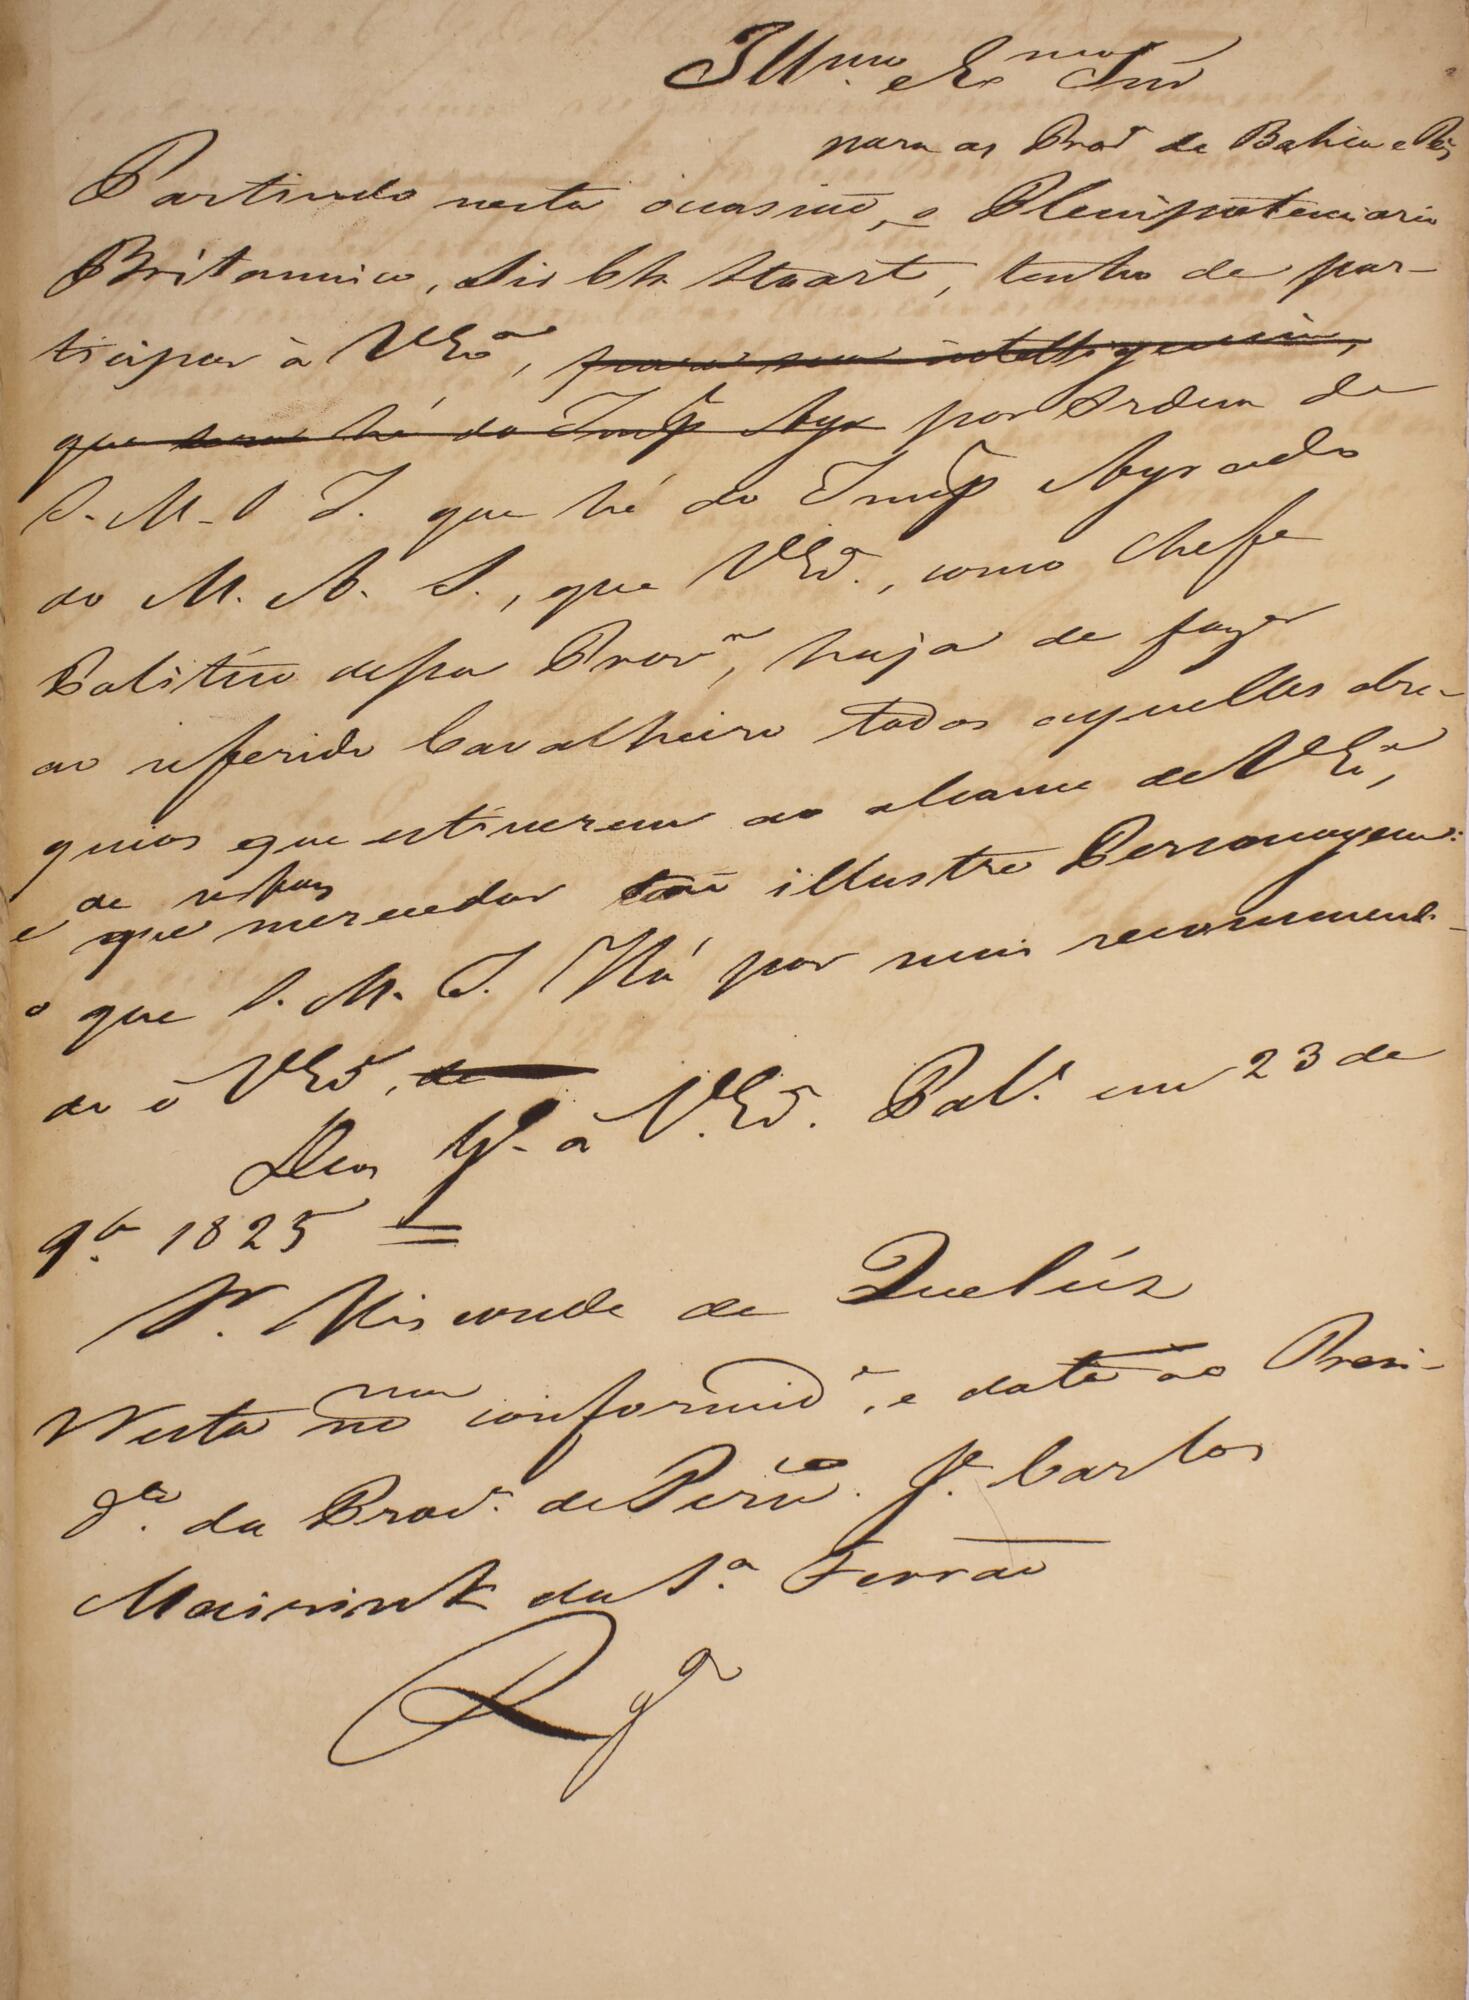 Illmo. e Exmo Snr
para as Provs de Bahia e
Partindo nesta occasião, o Plenipotenciario
Britannico, Sir Chs Stuart, tenho de par-
ticipar à V Exa, para sua intelligencia,
que he do Impl Agr por Ordem de
S. M. O I. que hé do Impl Agrado
do M. A. S., que V Exa., como Chefe
Politico dessa Prova, haja de fazer
ao referido Cavalheiro todos aquelles obse-
quios que estiverem ao alcance de V Exa,
e de que merecedor tão illustre Personagem:
o que S. M. I. Há por mui recommenda-
do à V Exa. de
Deos Ge. à V. Exa. Palo. em 23 de
9bro. 1825 =
Sr. Visconde de Queluz
Nesta ma conformide, e data ao Presi-
de. da Prova. de Pernco. Je. Carlos
Mairink da Sa. Ferrão